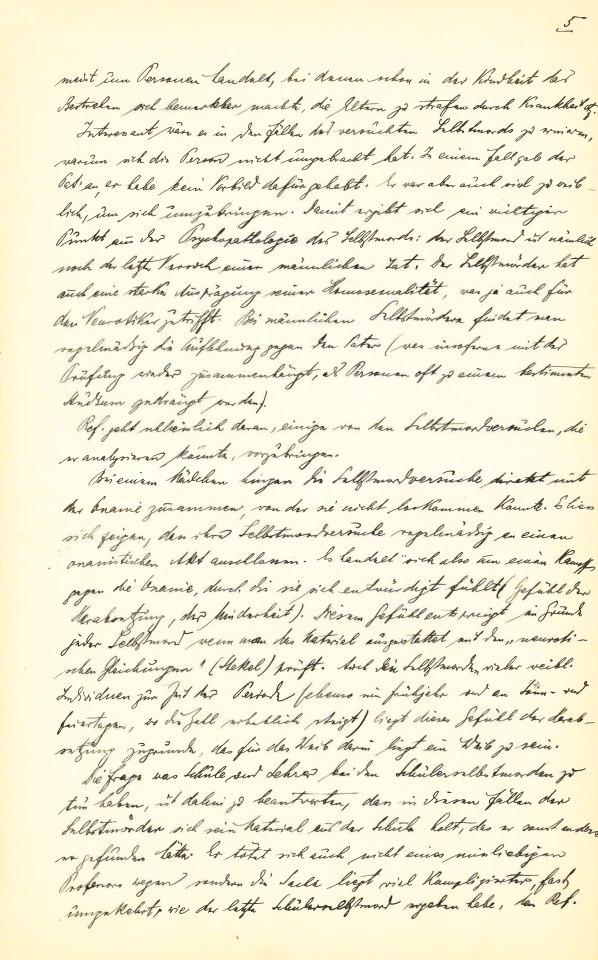 5
meist um Personen handelt, bei denen schon in der Kindheit das
Bestreben sich bemerkbar machte, die Eltern zu strafen durch Krankheit etz.
Interessant wäre es in den Fällen des versuchten Selbstmords zu eruieren,
warum sich die Person nicht umgebracht hat. In einem Fall gab der
Pat. an, er habe kein Vorbild dafür gehabt. Er war aber auch viel zu weib-
lich, um sich umzubringen. Damit ergibt sich ein wichtiger
Punkt aus der Psychopathologie des Selbstmords: der Selbstmord ist nämlich
noch der letzte Versuch einer männlichen Tat. Der Selbstmörder hat
auch eine starke Ausprägung seiner Homosexualität, was ja auch für
den Neurotiker zutrifft. Bei männlichen Selbstmördern findet man
regelmäßig die Auflehnung gegen den Vater (was insoferne mit der
Prüfung wieder zusammenhängt, als Personen oft zu einem bestimmten
Studium gedrängt werden).
Ref. geht schließlich daran, einige von den Selbstmordversuchen, die
er analysieren konnte, vorzubringen.
Bei einem Mädchen hingen die Selbstmordversuche direkt mit
der Onanie zusammen, von der sie nicht loskommen konnte. Es liess
sich zeigen, dass ihre Selbstmordversuche regelmäßig an einen
onanistischen Akt anschlossen. Es handelt sich also um einen Kampf
gegen die Onanie, durch die sie sich entwürdigt fühlt (Gefühl der
Herabsetzung, der Minderheit). Diesem Gefühl entspringt im Grunde
jeder Selbstmord wenn man das Material ausgestattet mit den „neuroti-
schen Gleichungen“ (Stekel) prüft. Auch den Selbstmorden vieler weibl.
Individuen zur Zeit der Periode (ebenso im Frühjahr und an Sonn- und
feiertagen, wo die Zahl erheblich steigt) liegt dieses Gefühl der Herab-
setzung zugrunde, das für das Weib darin liegt ein Weib zu sein.
Die Frage was Schule und Lehrer bei den Schülerselbstmorden zu
tun haben, ist dahin zu beantworten, dass in diesen Fällen der
Selbstmörder sich sein Material aus der Schule holt, das er sonst anders
wo gefunden hätte. Er tötet sich auch nicht eines missliebigen
Professors wegen sondern die Sache liegt viel komplizierter, fast
umgekehrt, wie der letzte Schülerselbstmord ergeben habe, den Ref.